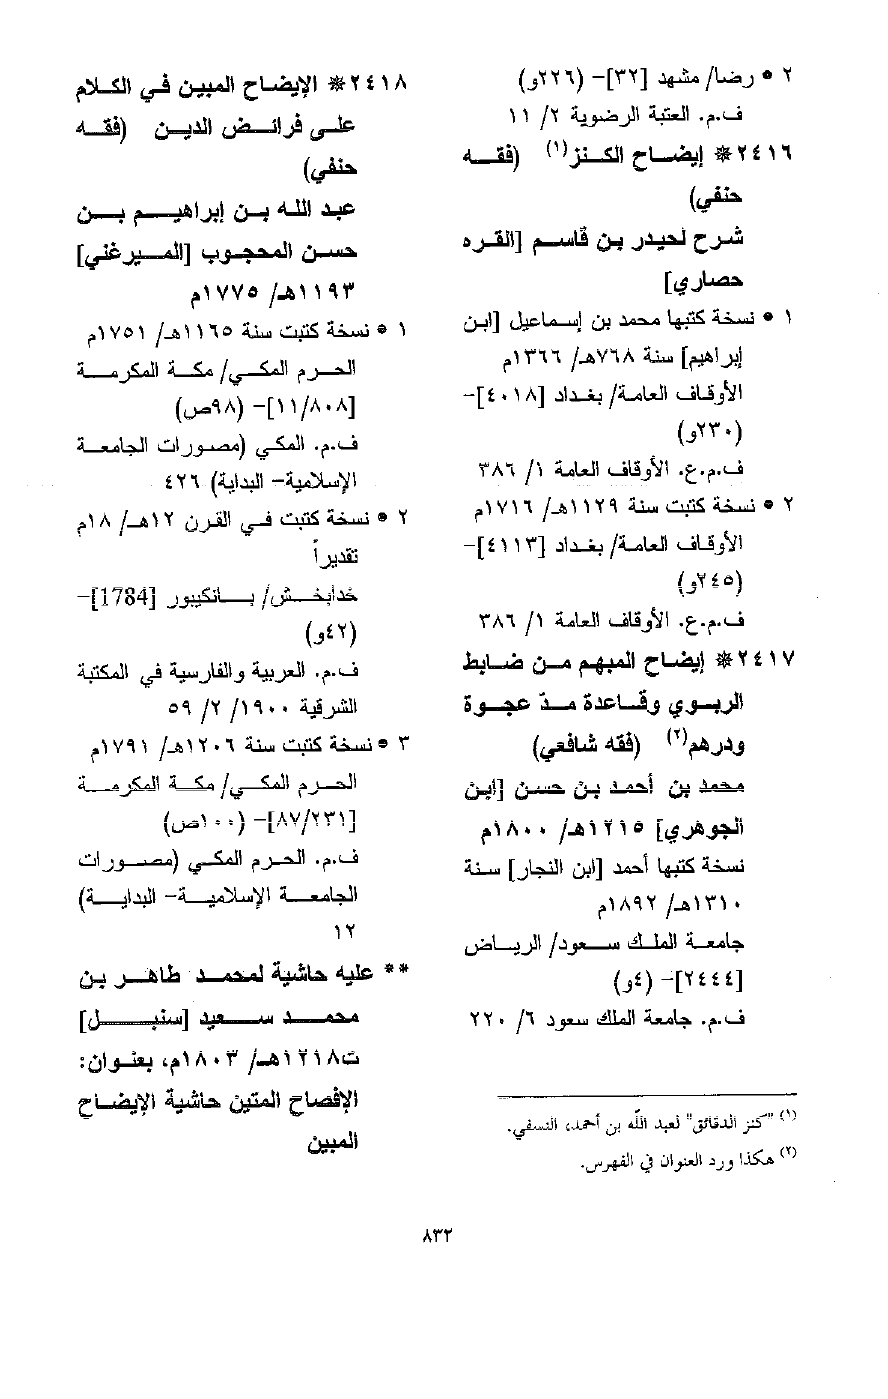 ٢ • رضا/ مشهد [٣٢]- (٢٢٦و)
ف.م. العتبة الرضوية ٢/ ١١
٢٤١٦* إيضاح الكنز(١) (فقه
حنفي)
شرح لحيدر بن قاسم [القره
حصاري]
١ • نسخة كتبها محمد بن إسماعيل [ابن
إبراهيم] سنة ٧٦٨هـ/ ١٣٦٦م
الأوقاف العامة/ بغداد [٤٠١٨]-
(٢٣٠و)
ف.م.ع. الأوقاف العامة ١/ ٣٨٦
٢ • نسخة كتبت سنة ١١٢٩هـ/ ١٧١٦م
الأوقاف العامة/ بغداد [٤١١٣]-
(٢٤٥و)
ف.م.ع. الأوقاف العامة ١/ ٣٨٦
٢٤١٧* إيضاح المبهم من ضابط
الربوي وقاعدة مدّ عجوة
ودرهم(٢) (فقه شافعي)
محمد بن أحمد بن حسن [ابن
الجوهري] ١٢١٥هـ/ ١٨٠٠م
نسخة كتبها أحمد [ابن النجار] سنة
١٣١٠هـ/ ١٨٩٢م
جامعة الملك سعود/ الرياض
[٢٤٤٤]- (٤و)
ف.م. جامعة الملك سعود ٦/ ٢٢٠
(١) "كنز الدقائق" لعبد الله بن أحمد، النسفي.
(٢) هكذا ورد العنوان في الفهرس.
٢٤١٨* الإيضاح المبين في الكلام
على فرائض الدين (فقه
حنفي)
عبد الله بن إبراهيم بن
حسن المحجوب [الميرغني]
١١٩٣هـ/ ١٧٧٥م
١ • نسخة كتبت سنة ١١٦٥هـ/ ١٧٥١م
الحرم المكي/ مكة المكرمة
[١١/٨٠٨]- (٩٨ص)
ف.م. المكي (مصورات الجامعة
الإسلامية- البداية) ٤٢٦
٢ • نسخة كتبت في القرن ١٢هـ/ ١٨م
تقديراً
خدابخش/ بانكيبور [1784]-
(٤٢و)
ف.م. العربية والفارسية في المكتبة
الشرقية ١٩٠٠/ ٢/ ٥٩
٣ • نسخة كتبت سنة ١٢٠٦هـ/ ١٧٩١م
الحرم المكي/ مكة المكرمة
[٨٧/٢٣١]- (١٠٠ص)
ف.م. الحرم المكي (مصورات
الجامعة الإسلامية- البداية)
١٢
** عليه حاشية لمحمد طاهر بن
محمد سعيد [سنبل]
ت١٢١٨هـ/ ١٨٠٣م، بعنوان:
الإفصاح المتين حاشية الإيضاح
المبين
٨٣٢